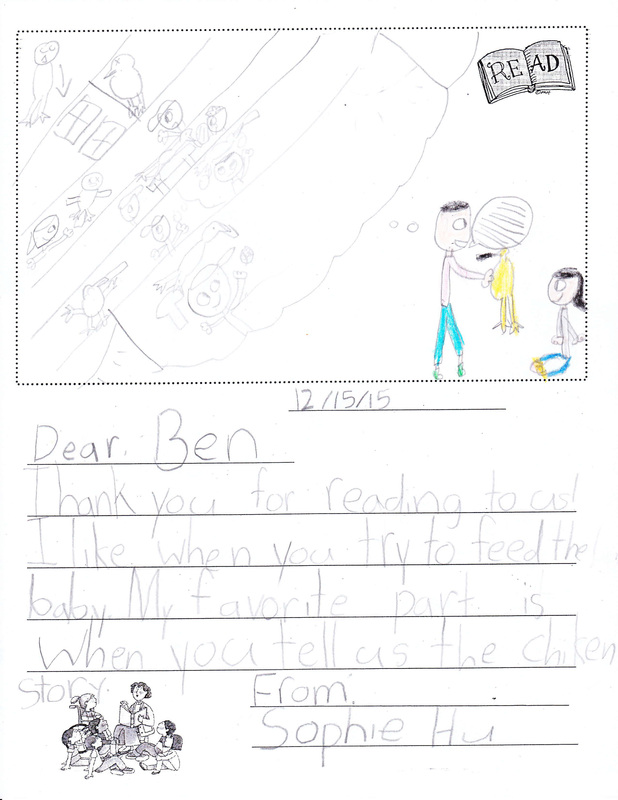 READ
12/15/15
Dear Ben
Thank you for reading to us!
I like when you try to feed the
baby. My favorite part is
When you tell us the chiken
story.
From,
Sophie Hu